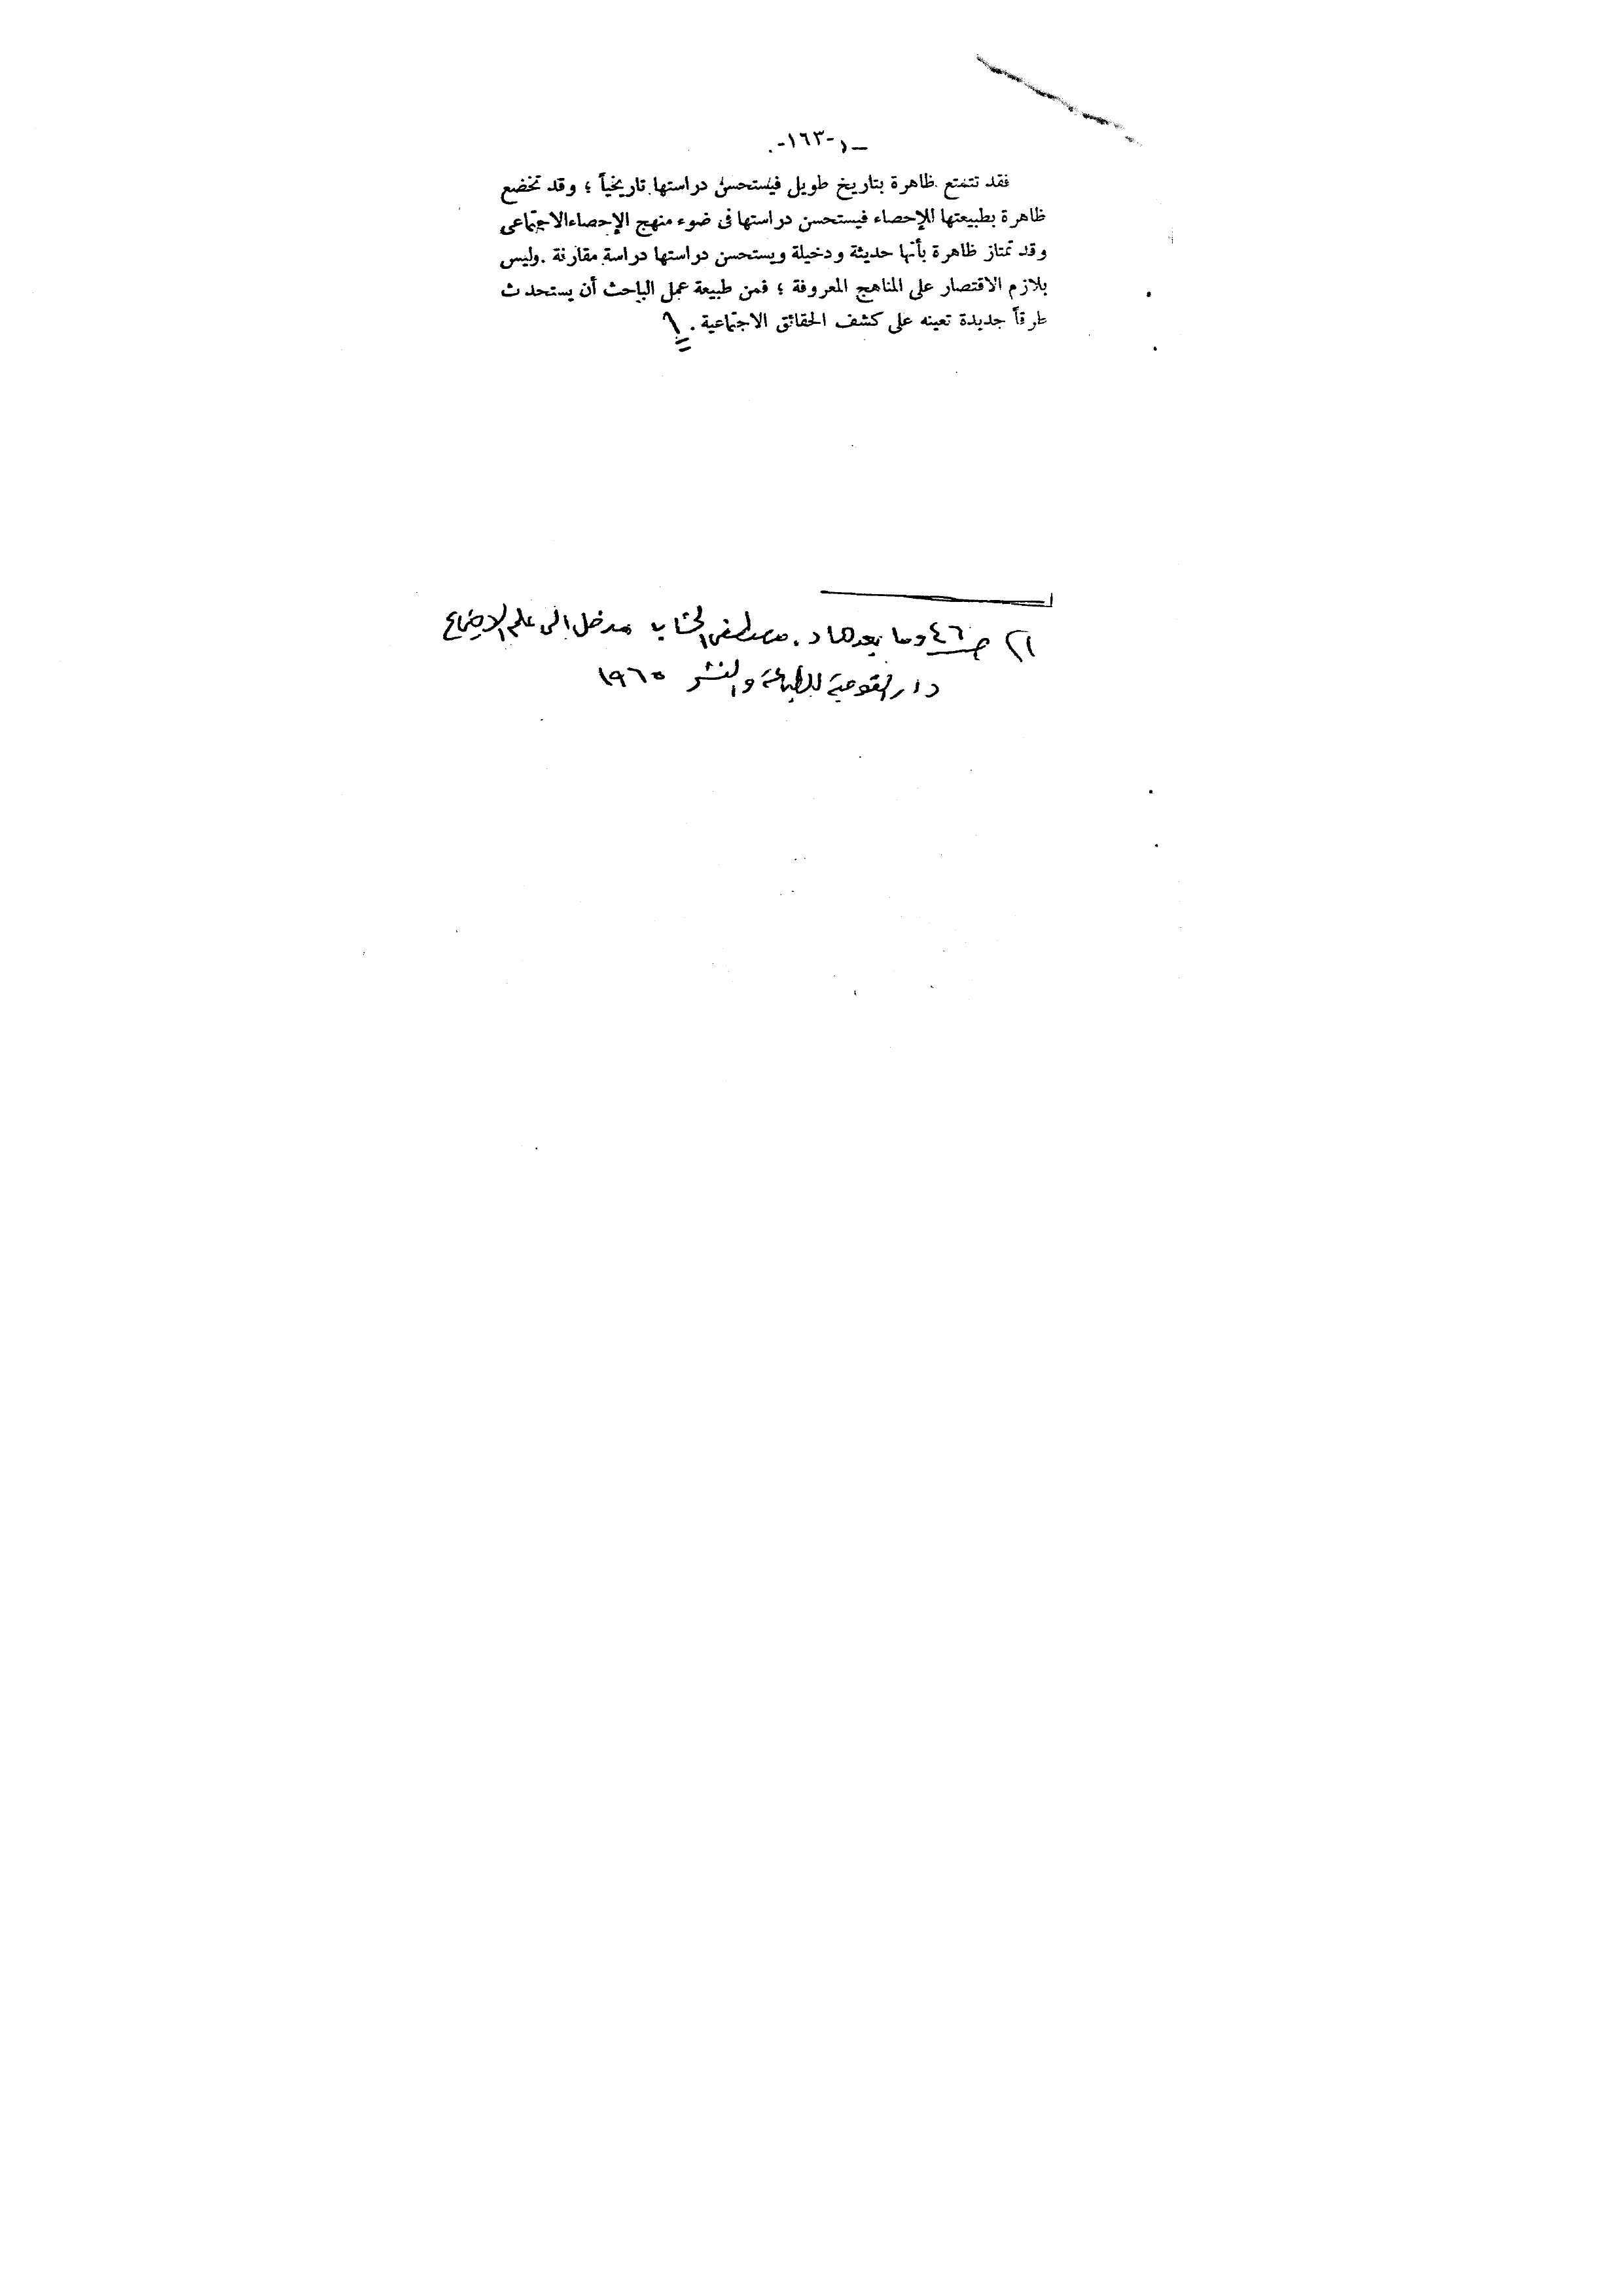 -١٦٣-
فقد تتمتع ظاهرة بتاريخ طويل فيستحسن دراستها تاريخياً ؛ وقد تخضع
ظاهرة بطبيعتها للإحصاء فيستحسن دراستها فى ضوء منهج الإحصاء الاجتماعى
وقد تمتاز ظاهرة بأنها حديثة ودخيلة ويستحسن دراستها دراسة مقارنة . وليس
بلازم الاقتصار على المناهج المعروفة ؛ فمن طبيعة عمل الباحث أن يستحدث
طرقاً جديدة تعينه على كشف الحقائق الاجتماعية .
ص ٤٦ وما بعدها د. مصطفى الخشاب مدخل الى علم الاجتماع
دار القومية للطباعة والنشر ١٩٦٥